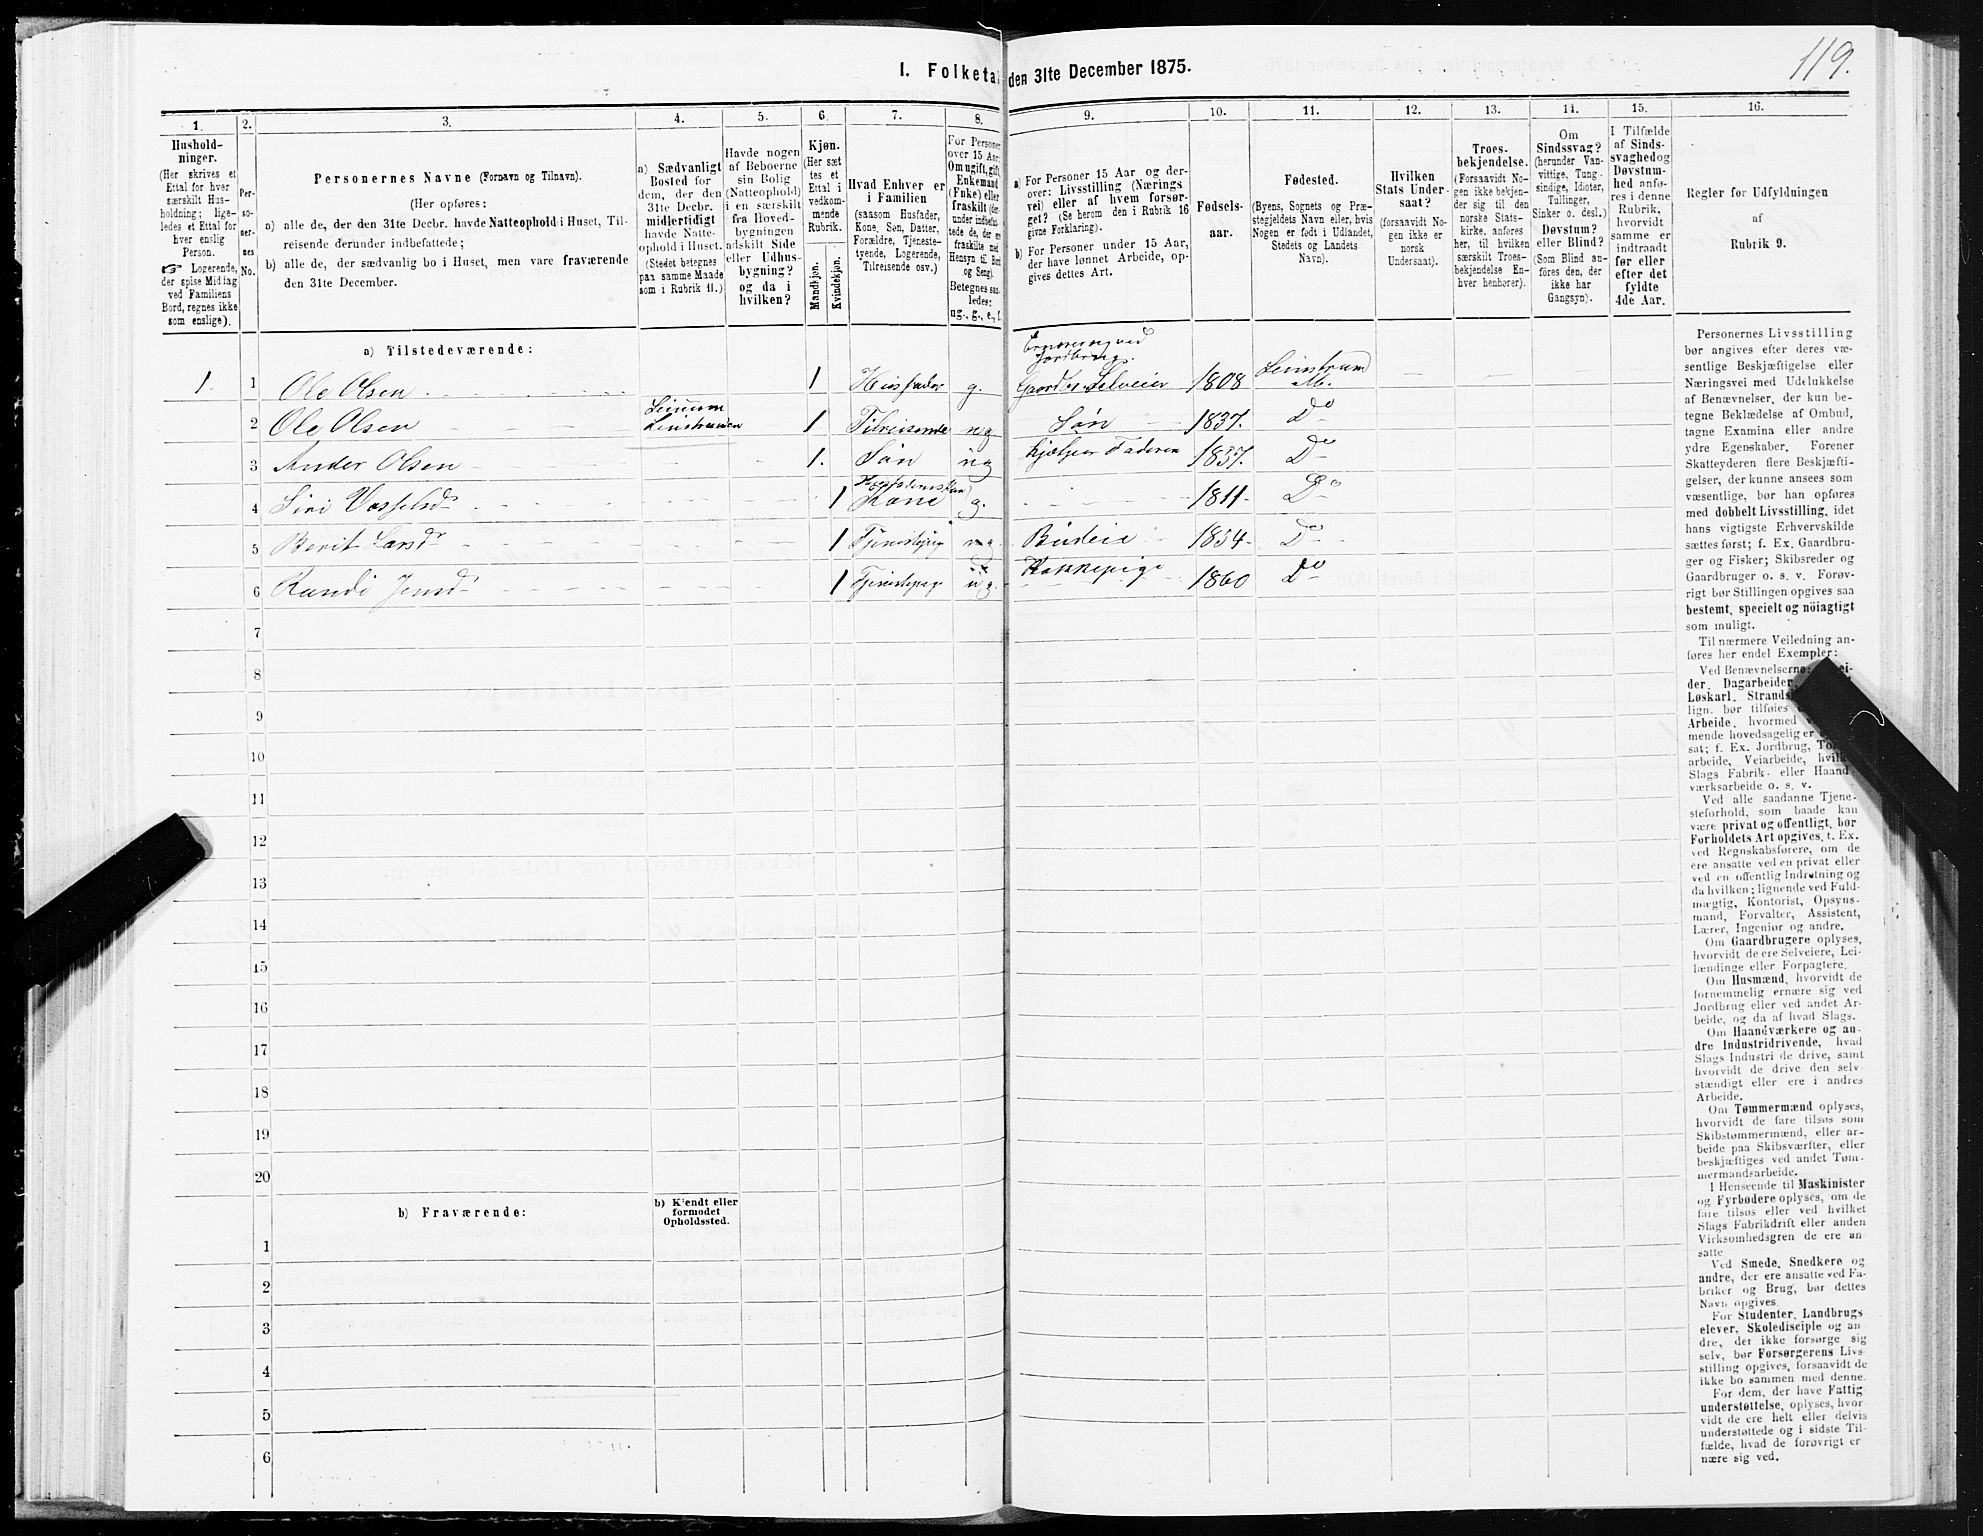 119.
I. Folketæ den 31te December 1875.
1. 2. 3. 4. 5. 6. 7. 8. 9. 10. 11. 12. 13. 14. 15. 16.
Hushold-
ninger.
(Her skrives et
Ettal for hver
særskilt Hus-
holdning; lige-
ledes et Ettal for
hver enslig
Person.
☞ Logerende,
der spise Middag
ved Familiens
Bord, regnes ikke
som enslige).
Per-
so-
ner-
nes
No.
Personernes Navne (Fornavn og Tilnavn).
(Her opføres:
a) alle de, der den 31te Decbr. havde Natteophold i Huset, Til-
reisende derunder indbefattede;
b) alle de, der sædvanlig bo i Huset, men vare fraværende
den 31te December.
a) Sædvanligt
Bosted for
dem, der den
31te Decbr.
midlertidigt
havde Natte-
ophold i Huset.
(Stedet betegnes
paa samme Maade
som i Rubrik 11.)
Havde nogen
af Beboerne
sin Bolig
(Natteophold)
i en særskilt
fra Hoved-
bygningen
adskilt Side
eller Udhus-
bygning?
og da i
hvilken?
Kjøn.
(Her sæt
tes et
Ettal i
vedkom-
mende
Rubrik.
Mandkjøn.
Kvindekjøn.
Hvad Enhver er
i Familien
(saasom Husfader,
Kone, Søn, Datter,
Forældre, Tjeneste-
tyende, Logerende,
Tilreisende osv.)
For Personer
over 15 Aar:
Om ugift, gift,
Enkemand
(Enke) eller
fraskilt (der-
under indbefat-
tede de, der er
fraskilte med
Hensyn til Bord
og Seng).
Betegnes saa-
ledes:
ug., g., e., f.
a) For Personer 15 Aar og der-
over: Livsstilling (Nærings
vei) eller af hvem forsør-
get? (Se herom den i Rubrik 16
givne Forklaring).
b) For Personer under 15 Aar,
der have lønnet Arbeide, op-
gives dettes Art.
Fødsels-
aar.
Fødested.
(Byens, Sognets og Præ-
stegjeldets Navn eller, hvis
Nogen er født i Udlandet,
Stedets og Landets
Navn).
Hvilken
Stats Under-
saat?
(forsaavidt No-
gen ikke er
norsk
Undersaat).
Troes-
bekjendelse.
(Forsaavidt No-
gen ikke bekjen-
der sig til den
norske Stats-
kirke, anføres
her, til hvilken
særskilt Troes-
bekjendelse En-
hver henhører).
Om
Sindssvag?
(herunder Van-
vittige, Tung-
sindige, Idioter,
Tullinger,
Sinker o. desl.)
Døvstum?
eller Blind?
(Som Blind an-
føres den, der
ikke har
Gangsyn).
I Tilfælde
af Sinds-
svaghed og
Døvstum-
hed anfø-
res i denne
Rubrik,
hvorvidt
samme er
indtraadt
før eller
efter det
fyldte
4de Aar.
Regler før Udfyldningen
af
Rubrik 9.
a) Tilstedeværende:
1. 1 Ole Olsen 1 Husfader g. Gaardbr. Selveier 1808 Leinstrand
2 Ole Olsen 1 Tilreisende ug Søn 1837. Do
3 Ander Olsen 1. Søn ug Hjælper Faderen 1837. Do
4 1 Kone g. 1811 Do
5 Berit Larsdr 1 Budeie 1854 Do
6 Randi Jensdr 1 ug. Kokkepige 1860 Do
7
8
9
10
11
12
13
14
15
16
17
18
19
20
b) Fraværende:
b) Kjendt eller
formodet
Opholdssted.
1
2
3
4
5
6
Personernes Livsstilling
bør angives efter deres væ-
sentlige Beskjæftigelse eller
Næringsvei med Udelukkelse
af Benævnelser, der kun be-
tegne Beklædelse af Ombud,
tagne Examina eller andre
ydre Egenskaber. Forener
Skatteyderen flere Beskjæfti-
gelser, der kunne ansees som
væsentlige, bør han opføres
med dobbelt Livsstilling, idet
hans vigtigste Erhvervskilde
sættes først; f. Ex. Gaardbru-
ger og Fisker; Skibsreder og
Gaardbruger o. s. v. Forøv-
rigt bør Stillingen opgives saa
bestemt, specielt og nöiagtigt
som muligt.
Til nærmere Veiledning an-
føres her endel Exempler:
Ved Benævnelserne:
der, Dagarbeider,
Løskarl, Strands
lign. bør tilføies
Arbeide, hvormed
mende hovedsagelig er
sat; f. Ex. Jordbrug,
arbeide, Veiarbeide,
Slags Fabrik- eller Haand-
værksarbeide o. s. v.
Ved alle saadanne Tjene-
steforhold, som baade kan
være privat og offentligt, bør
Forholdets Art opgives, f. Ex.
ved Regnskabsførere, om de
ere ansatte ved en privat eller
ved en offentlig Indretning og
da hvilken; lignende ved Fuld-
mægtig, Kontorist, Opsyns-
mand, Forvalter, Assistent,
Lærer, Ingeniør og andre.
Om Gaardbrugere oplyses,
hvorvidt de ere Selveiere, Lei-
lændinge eller Forpagtere.
Om Husmænd, hvorvidt de
fornemmelig ernære sig ved
Jordbrug eller ved andet Ar-
beide, og da af hvad Slags.
Om Haandværkere og an-
dre Industridrivende, hvad
Slags Industri de drive, samt
hvorvidt de drive den selv-
stændigt eller ere i andres
Arbeide.
Om Tømmermænd oplyses,
hvorvidt de fare tilsøs som
Skibstømmermænd, eller ar-
beide paa Skibsværfter, eller
beskjæftiges ved andet Tøm-
mermandsarbeide.
I Henseende til Maskinister
og Fyrbødere oplyses, om de
fare tilsøs eller ved hvilket
Slags Fabrikdrift eller anden
Virksomhedsgren de ere an-
satte
Ved Smede, Snedkere og
andre, der ere ansatte ved Fa-
briker og Brug, bør dettes
Navn opgives.
For Studenter, Landbrugs
elever, Skoledisciple og an-
dre, der ikke forsørge sig
selv, bør Forsørgerens Livs-
stilling opgives, forsaavidt de
ikke bo sammen med denne.
For dem, der have Fattig
understøttelse, oplyses, hvor-
vidt de ere helt eller delvis
understøttede og i sidste Til-
fælde, hvad de forøvrigt er
nære sig ved.